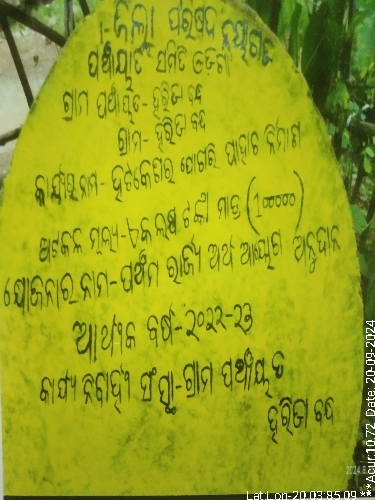 ଜିଲ୍ଲା ପରିଷଦ ନୟାଗଡ
ପଞ୍ଚାୟତ ସମିତି
ଗ୍ରାମ ପଞ୍ଚାୟତ- ହରିଡା ବନ୍ଧ
ଗ୍ରାମ- ହରିଡା ବନ୍ଧ
କାର୍ଯ୍ୟର ନାମ- ହଟକେଶ୍ଵର ପୋଖରି ପାହାଚ ନିର୍ମାଣ
ଅଟକଳ ମୂଲ୍ୟ- ଏକ ଲକ୍ଷ ଟଙ୍କା ମାତ୍ର (100000)
ଯୋଜନାର ନାମ- ପଞ୍ଚମ ରାଜ୍ୟ ଅର୍ଥ ଆୟୋଗ ଅନୁଦାନ
ଆର୍ଥିକ ବର୍ଷ- ୨୦୨୨-୨୩
କାର୍ଯ୍ୟ ନିର୍ବାହୀ ସଂସ୍ଥା- ଗ୍ରାମ ପଞ୍ଚାୟତ
ହରିଡା ବନ୍ଧ
Lat Lon-20.03:85.09 ***Acur:10.72 Date: 20-09-2024